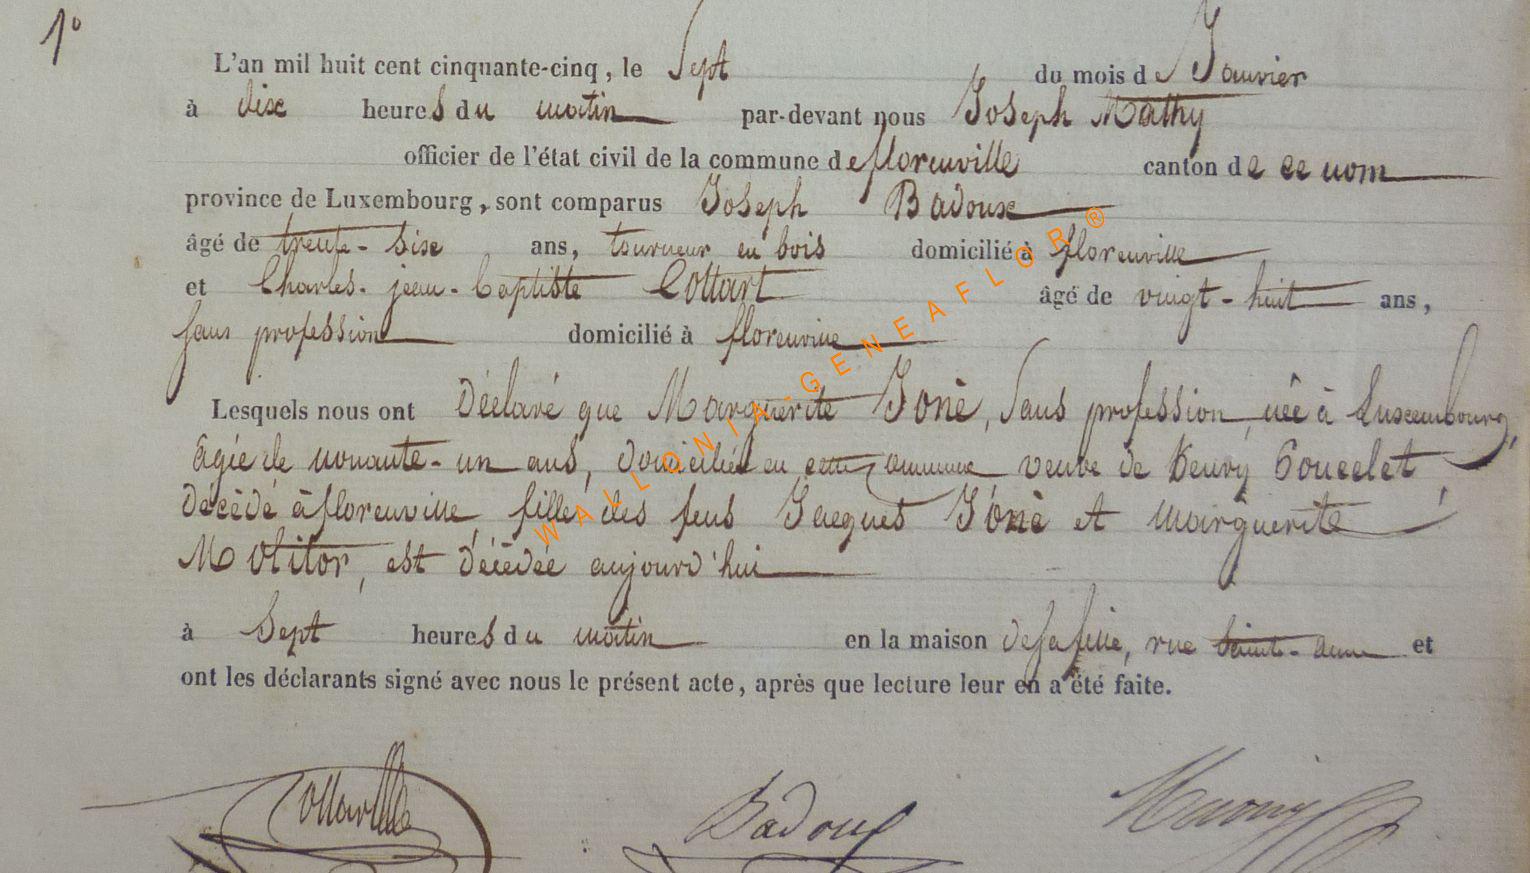 1°
L'an mil huit cent cinquante-cinq, le Sept du mois de Janvier
à dix heures du matin par-devant nous Joseph Mathy
officier de l'état civil de la commune de florenville canton de ce nom
province de Luxembourg, sont comparus Joseph Badoux
âgé de trente-Six ans, tourneur en bois domicilié à florenville
et Charles-jean-baptiste Collart âgé de vingt-huit ans,
sans profession domicilié à florenville
Lesquels nous ont Déclaré que Marguerite Joné, Sans profession, née à Luxembourg,
âgée de nonante-un ans, domiciliée en cette commune veuve de henry Poncelet,
décédé à florenville, fille des feus Jacques Joné et Marguerite
Molitor, est décédée aujourd'hui
à Sept heures du matin en la maison de sa fille, rue Sainte-anne et
ont les déclarants signé avec nous le présent acte, après que lecture leur en a été faite.
Badoux
WALLONIA-GENEAFLOR®